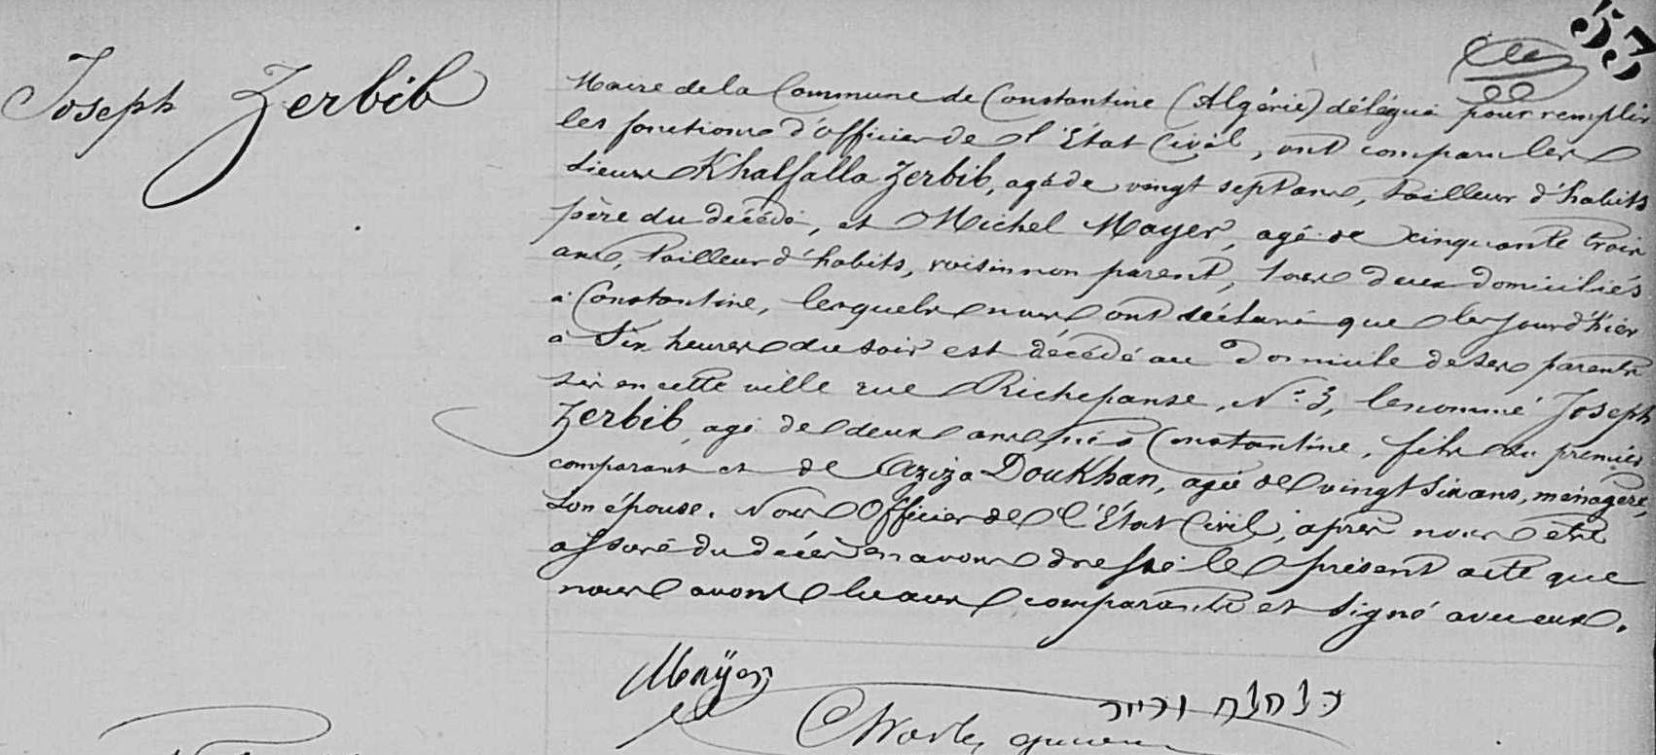 57
Joseph Zerbib
Maire de la Commune de Constantine (Algérie) délégué pour remplir
les fonctions d'officier de l'État Civil, ont comparu les
sieurs Khalfalla Zerbib, agé de vingt sept ans, tailleur d'habits
père du décédé, et Michel Mayer, agé de cinquante trois
ans, tailleur d'habits, voisin non parent, tous deux domiciliés
à Constantine, lesquels nous ont déclaré que le jour d'hier
à Six heures du soir est décédé au domicile de ses parents
sis en cette ville rue Richepanse, No 3, le nommé Joseph
Zerbib, agé de deux ans, né à Constantine, fils du premier
comparant et de Aziza Doukhan, agée de vingt six ans, ménagère,
son épouse. Nous Officier de l'État Civil, après nous être
assuré du décès en avons dressé le présent acte que
nous avons lu aux comparants et signé avec eux.
Mayer